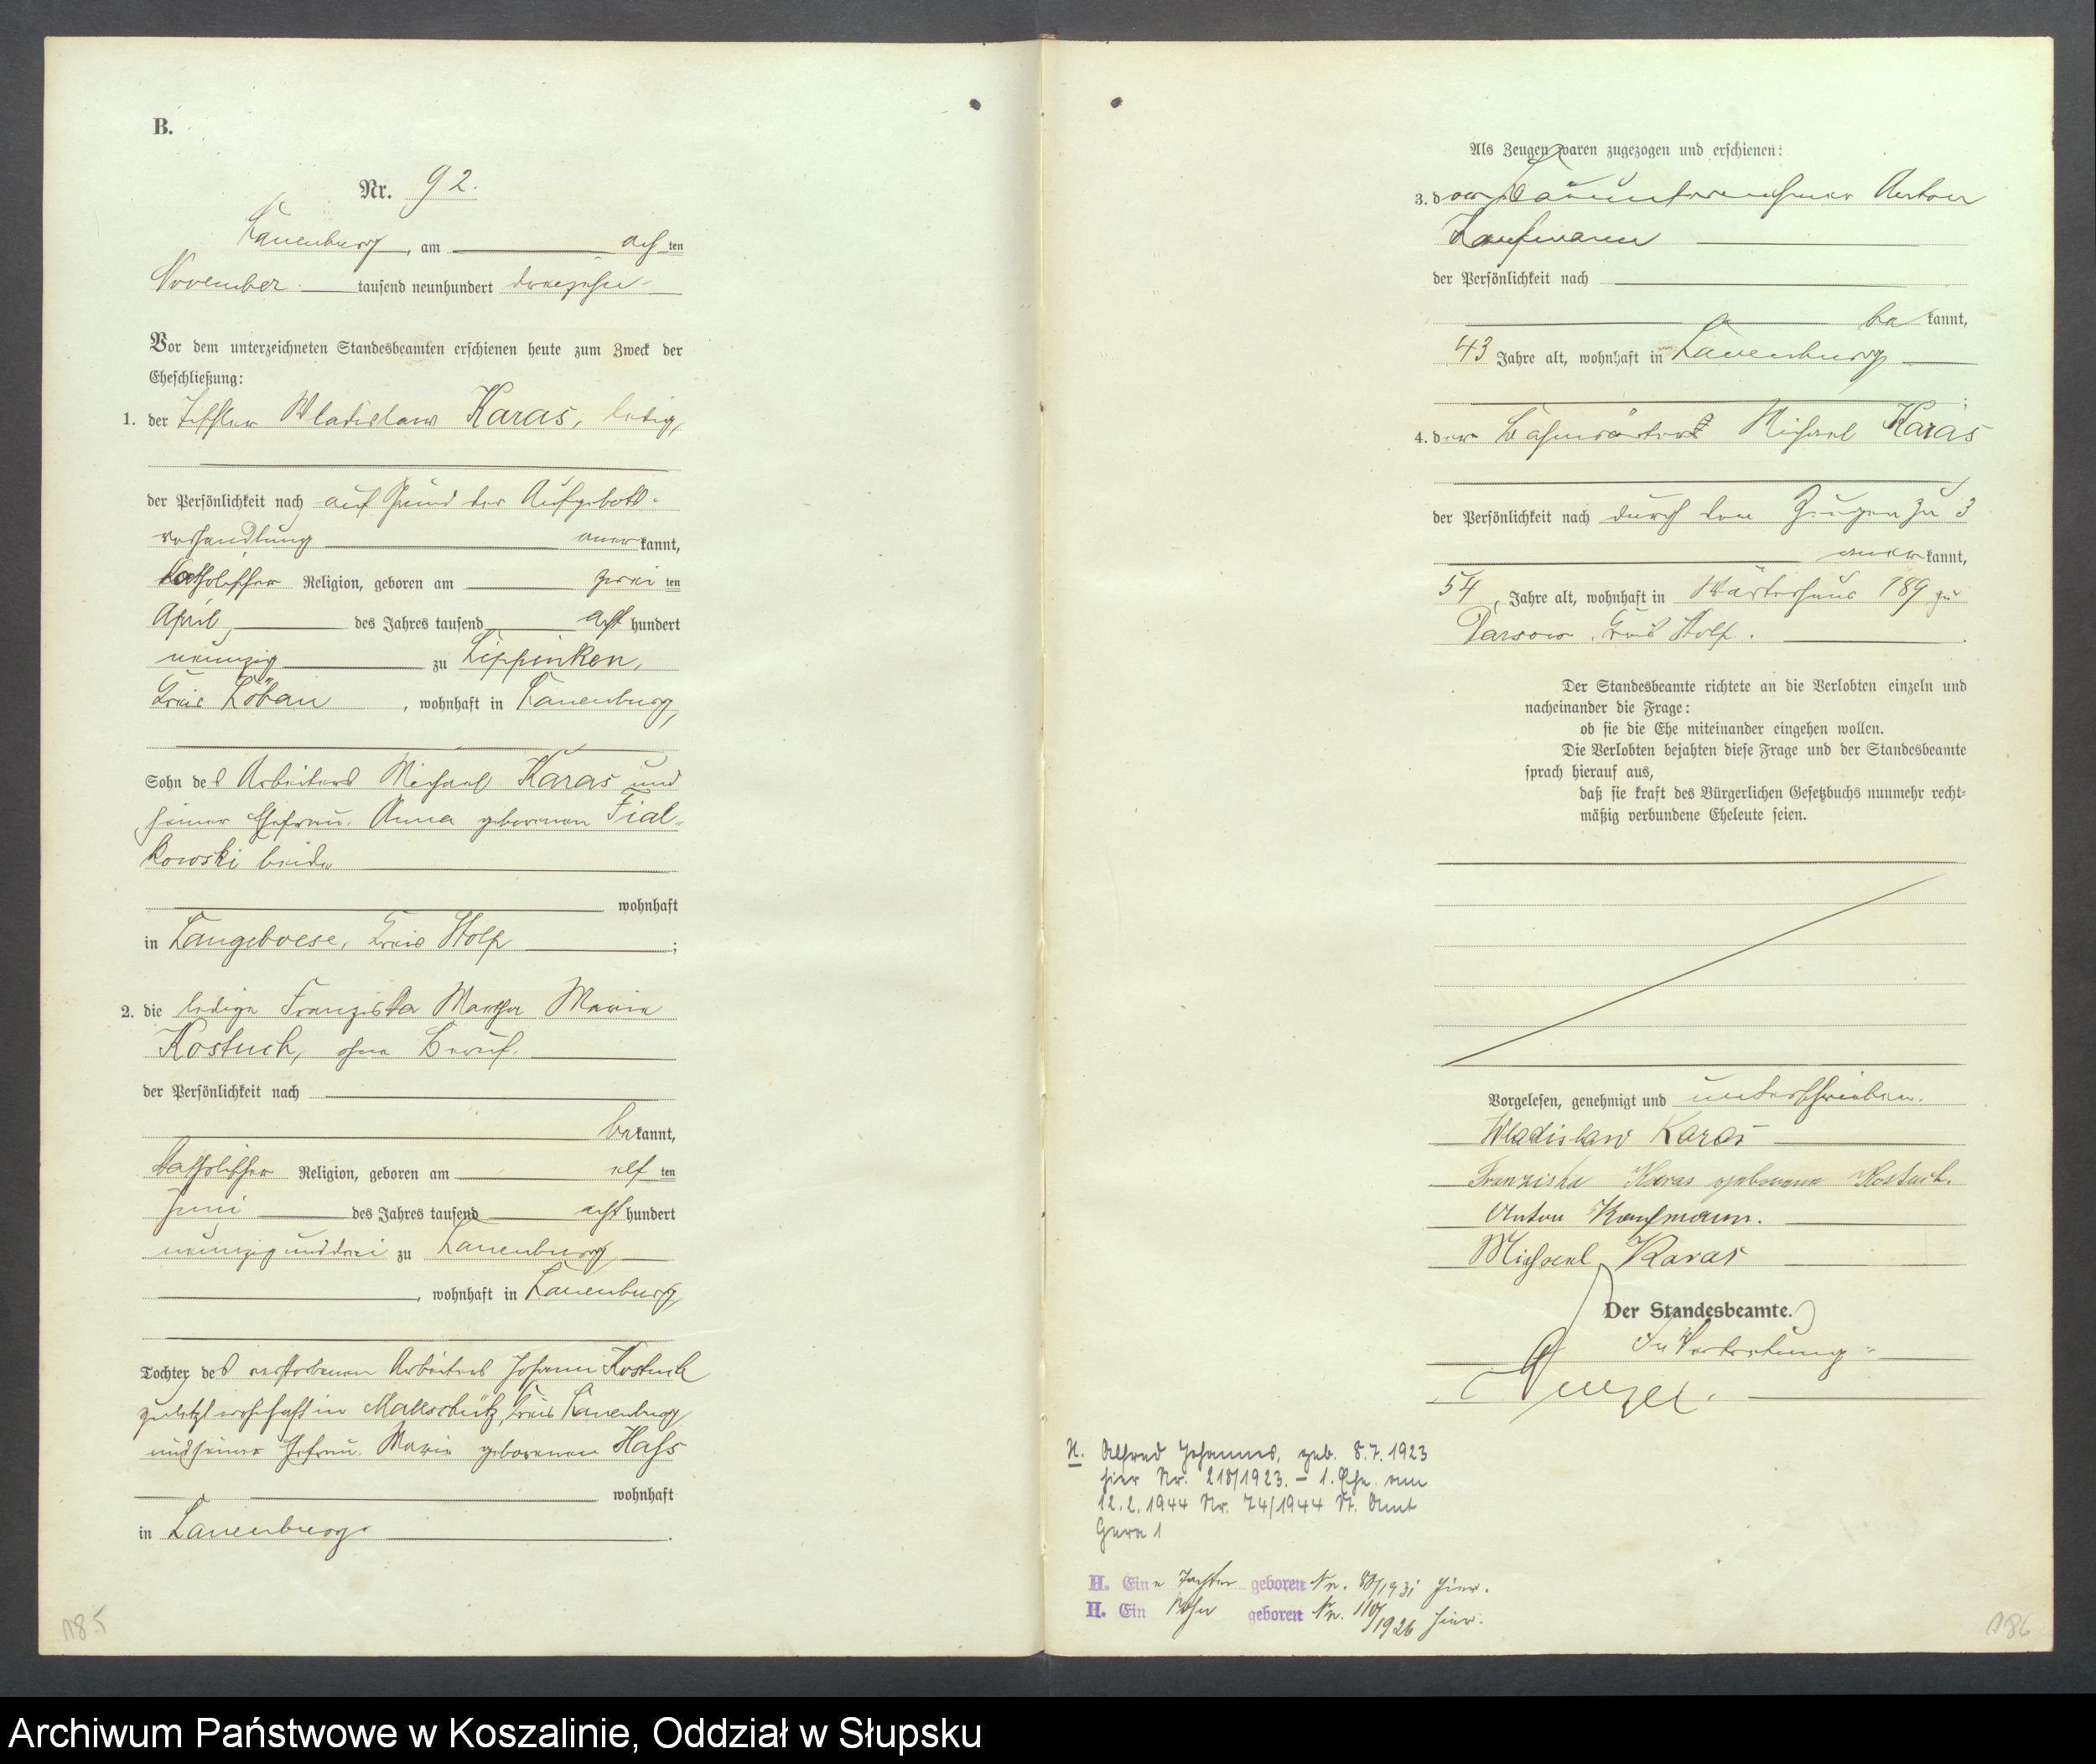 B.
Nr. 92.
Lauenburg, am achten
November tausend neunhundert dreizehn
Vor dem unterzeichneten Standesbeamten erschienen heute zum Zweck der
Eheschließung:
1. der Tischler Wladislaw Karas, ledig,
der Persönlichkeit nach auf Grund der Aufgebots-
verhandlung anerkannt,
katholischer Religion, geboren am zweiten
April, des Jahres tausend acht hundert
neunzig zu Lippinken,
Kreis Löbau, wohnhaft in Lauenburg,
Sohn des Arbeiters Michael Karas und
seiner Ehefrau Anna geborenen Fial-
kowski beide
wohnhaft
in Langeboese, Kreis Stolp;
2. die ledige Franziska Martha Maria
Kostuch, ohne Beruf.
der Persönlichkeit nach
bekannt,
katholischer Religion, geboren am elften
Juni des Jahres tausend acht hundert
neunzig und drei zu Lauenburg
, wohnhaft in Lauenburg
Tochter des verstorbenen Arbeiters Johann Kostuch
zuletzt wohnhaft in Mallschütz, Kreis Lauenburg
und seiner Ehefrau Marie geborenen Hass
wohnhaft
in Lauenburg.
185
Als Zeugen waren zugezogen und erschienen:
3. der Bauunternehmer Anton
Kaufmann
der Persönlichkeit nach
bekannt,
43 Jahre alt, wohnhaft in Lauenburg
;
4. der Bahnwärter Michael Karas
der Persönlichkeit nach durch den Zeugen zu 3
anerkannt,
54, Jahre alt, wohnhaft in Wärterhaus 189 zu
Darsow, Kreis Stolp.
Der Standesbeamte richtete an die Verlobten einzeln und
nacheinander die Frage:
ob sie die Ehe miteinander eingehen wollen.
Die Verlobten bejahten diese Frage und der Standesbeamte
sprach hierauf aus,
daß sie kraft des Bürgerlichen Gesetzbuchs nunmehr recht-
mäßig verbundene Eheleute seien.
Vorgelesen, genehmigt und unterschrieben.
Wladislaw Karas
Franziska Karas geborene Kostuch.
Anton Kaufmann.
Michael Karas
Der Standesbeamte.
In Vertretung
H. Alfred Johannes, geb. 8.7.1923
hier Nr. 218/1923. – 1. Ehe am
12.2.1944 Nr. 74/1944 St. Amt
Gera 1
H. Eine Tochter geboren Nr. 80/1931 hier.
H. Ein Sohn geboren Nr. 110/1926 hier.
186
Archiwum Państwowe w Koszalinie, Oddział w Słupsku